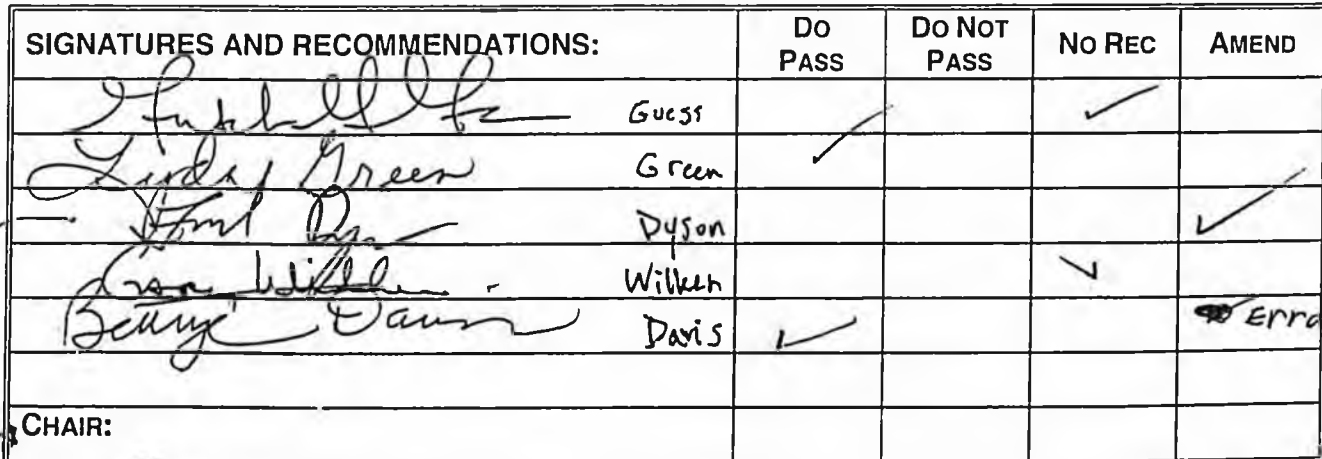 SIGNATURES AND RECOMMENDATIONS: DO PASS DO NOT PASS NO REC AMEND
Guess ✓
Lyda Green Green ✓
Dyson ✓
Wilken ✓
Bettye Davis Davis ✓ Erro
CHAIR: